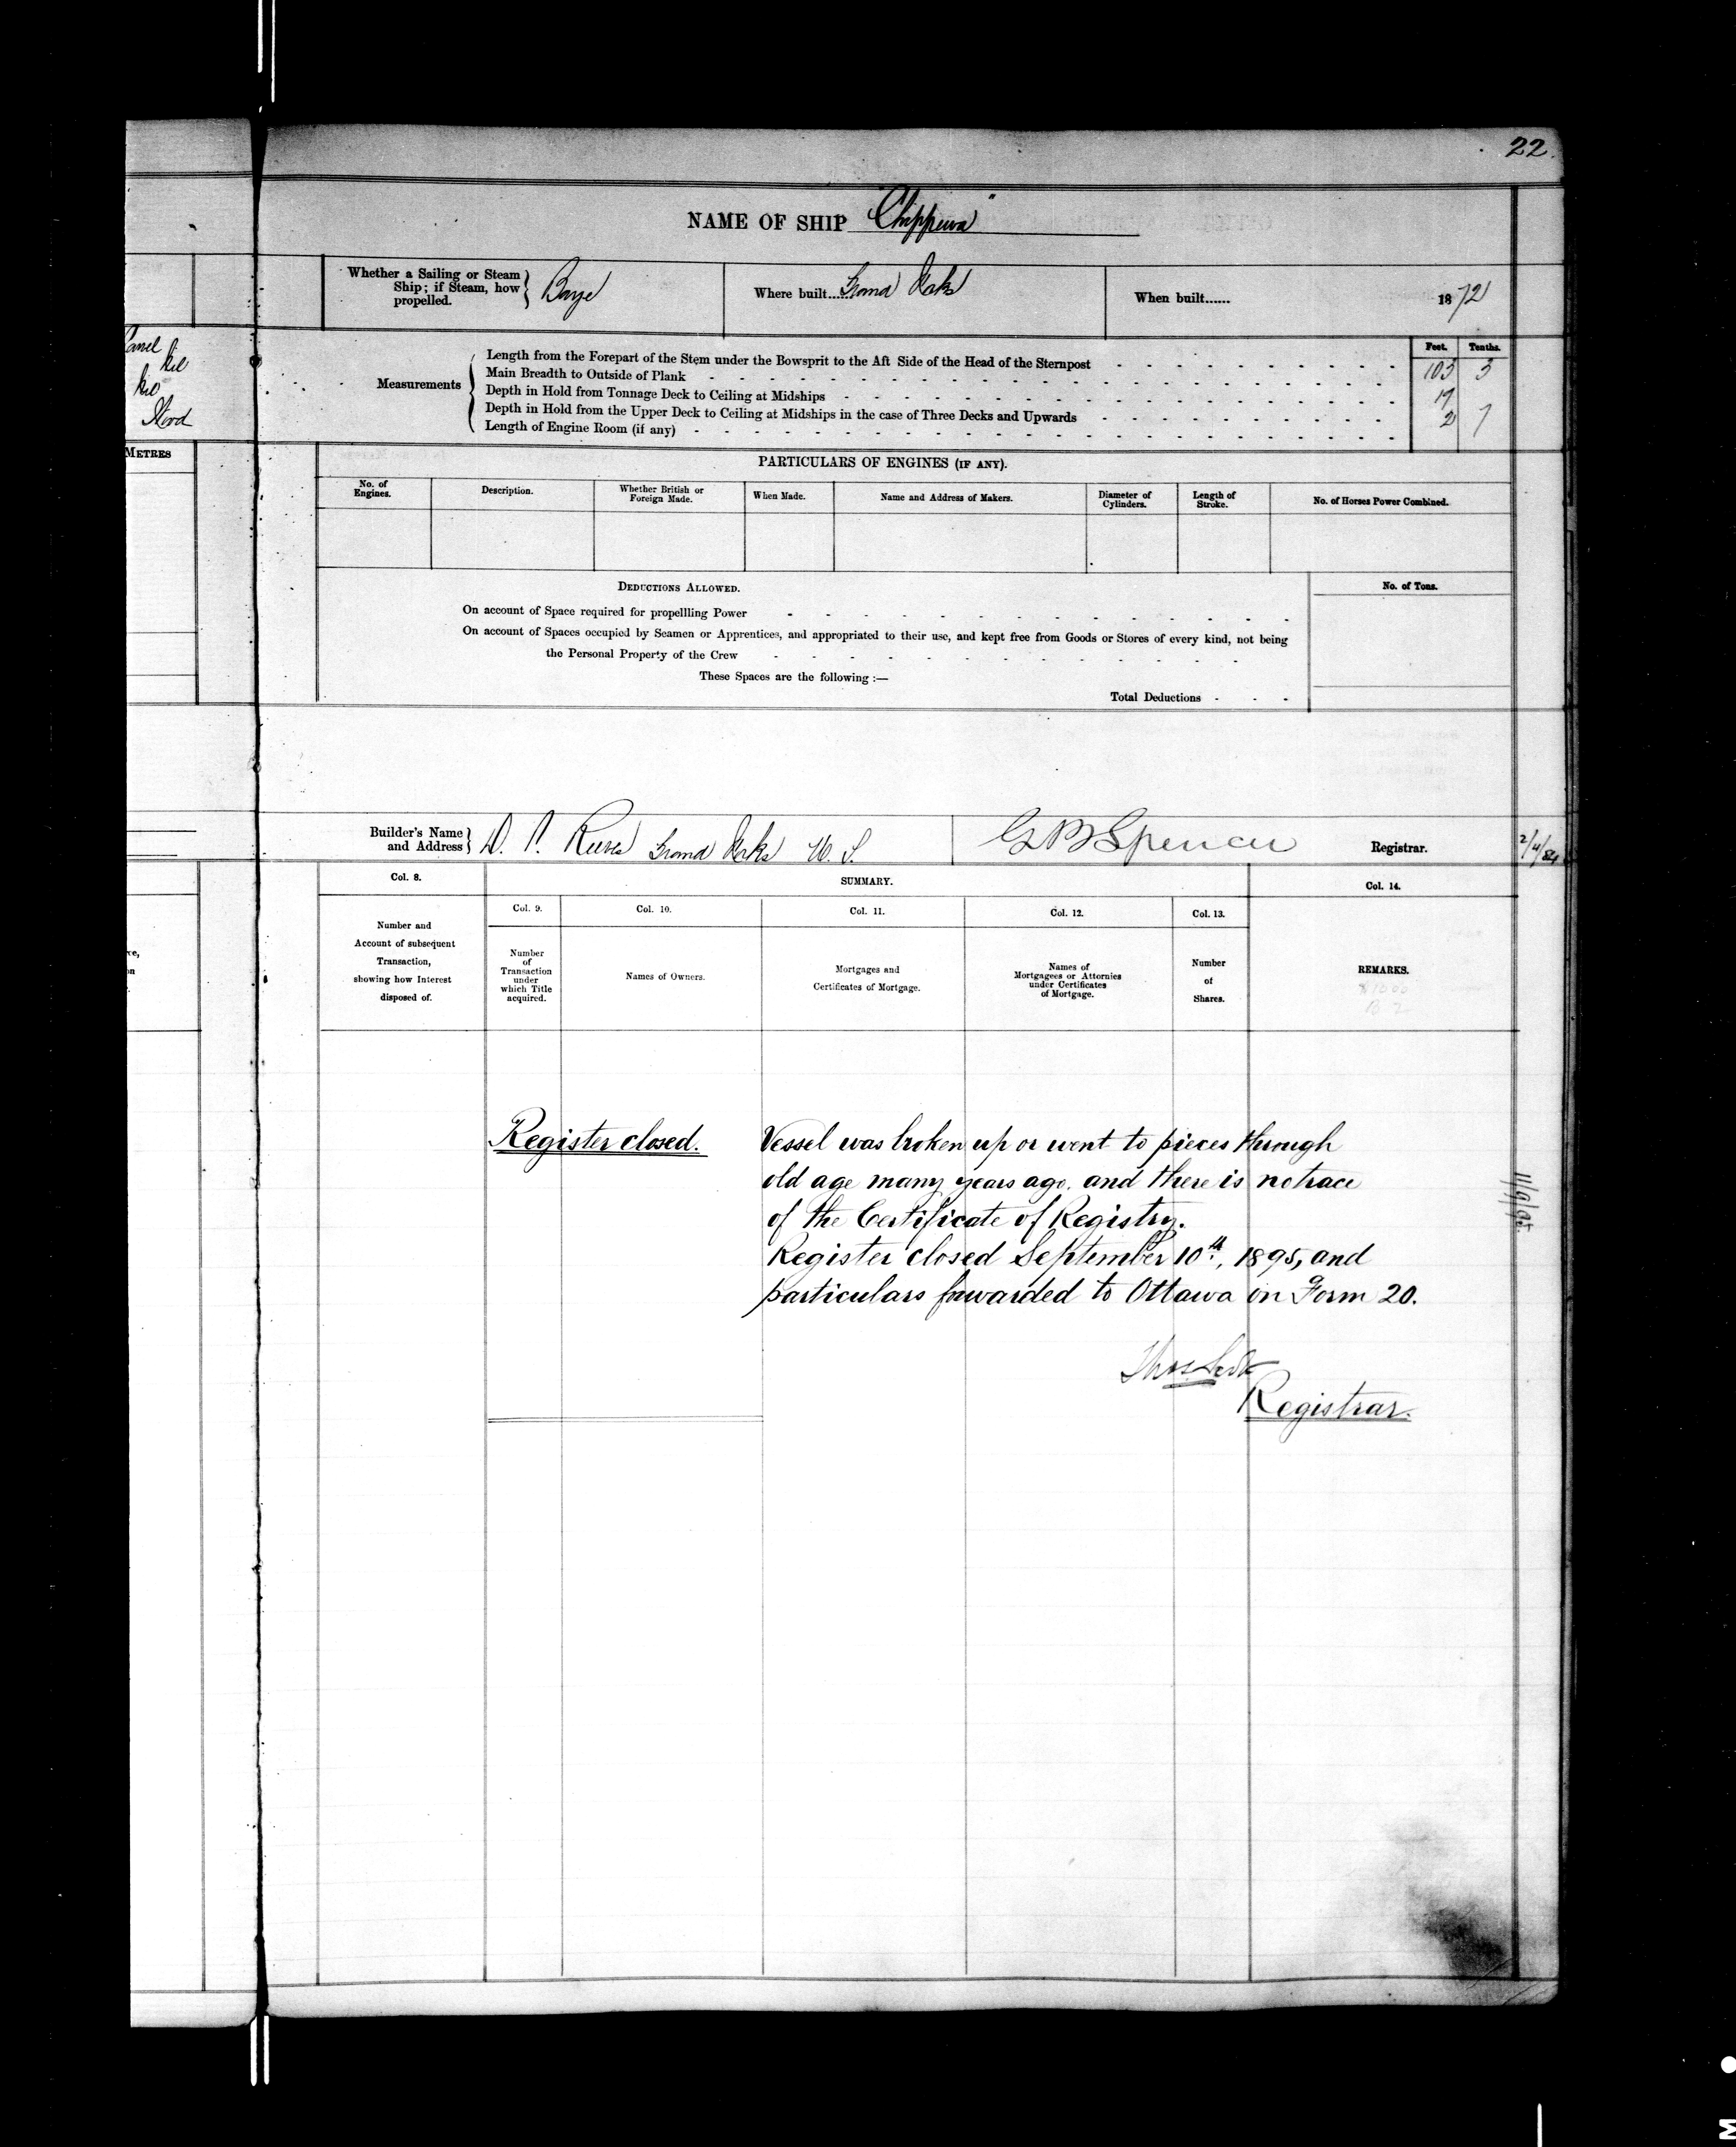 22
NAME OF SHIP "Chippewa"
Whether a Sailing or Steam Ship; if Steam, how propelled. } Barge
Where built...... Grand Forks
When built...... 1872
Feet. Tenths.
Measurements
Length from the Forepart of the Stem under the Bowsprit to the Aft Side of the Head of the Sternpost 103 3
Main Breadth to Outside of Plank 17
Depth in Hold from Tonnage Deck to Ceiling at Midships 2 7
Depth in Hold from the Upper Deck to Ceiling at Midships in the case of Three Decks and Upwards
Length of Engine Room (if any)
METRES
PARTICULARS OF ENGINES (IF ANY).
No. of Engines.
Description.
Whether British or Foreign Made.
When Made.
Name and Address of Makers.
Diameter of Cylinders.
Length of Stroke.
No. of Horses Power Combined.
DEDUCTIONS ALLOWED.
No. of Tons.
On account of Space required for propellling Power
On account of Spaces occupied by Seamen or Apprentices, and appropriated to their use, and kept free from Goods or Stores of every kind, not being
the Personal Property of the Crew
These Spaces are the following :—
Total Deductions
Builder's Name and Address } D. P. Reeves Grand Forks U. S.
G B Spencer Registrar.
2/4/84
Col. 8.
SUMMARY.
Col. 14.
Col. 9. Col. 10. Col. 11. Col. 12. Col. 13.
Number and Account of subsequent Transaction, showing how Interest disposed of.
Number of Transaction under which Title acquired.
Names of Owners.
Mortgages and Certificates of Mortgage.
Names of Mortgagees or Attornies under Certificates of Mortgage.
Number of Shares.
REMARKS.
Register closed. Vessel was broken up or went to pieces through
old age many years ago. and there is no trace
of the Certificate of Registry.
Register closed September 10th, 1895, and
particulars forwarded to Ottawa on Form 20.
11/9/95
Thos. Scott
Registrar.